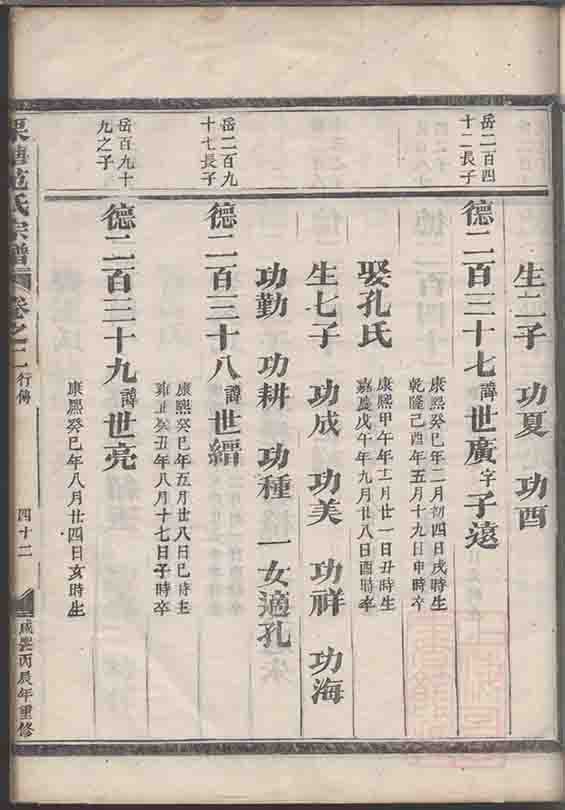 生二子　功夏　功酉
岳二百四
十二長子
德二百三十七諱世廣字子遠
康熙癸巳年二月初四日戌時生
乾隆己酉年五月十九日申時卒
娶孔氏
康熙甲午年十二月廿一日丑時生
嘉慶戊午年九月廿八日酉時卒
生七子　功成　功美　功祥　功海
功勤　功耕　功種　一女適孔
岳二百九
十七長子
德二百三十八諱世縉
康熙癸巳年五月廿八日巳時生
雍正癸丑年八月十七日子時卒
岳百九十
九之子
德二百三十九諱世亮
康熙癸巳年八月廿四日亥時生
范氏宗譜　卷之二　行傳　四十二　咸豐丙辰年重修